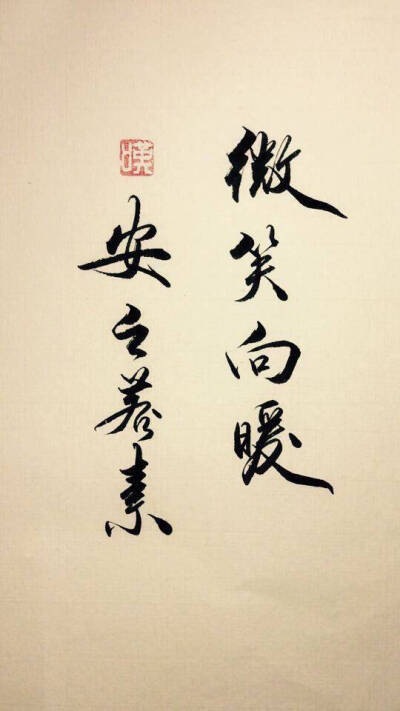 微笑向暖
安之若素